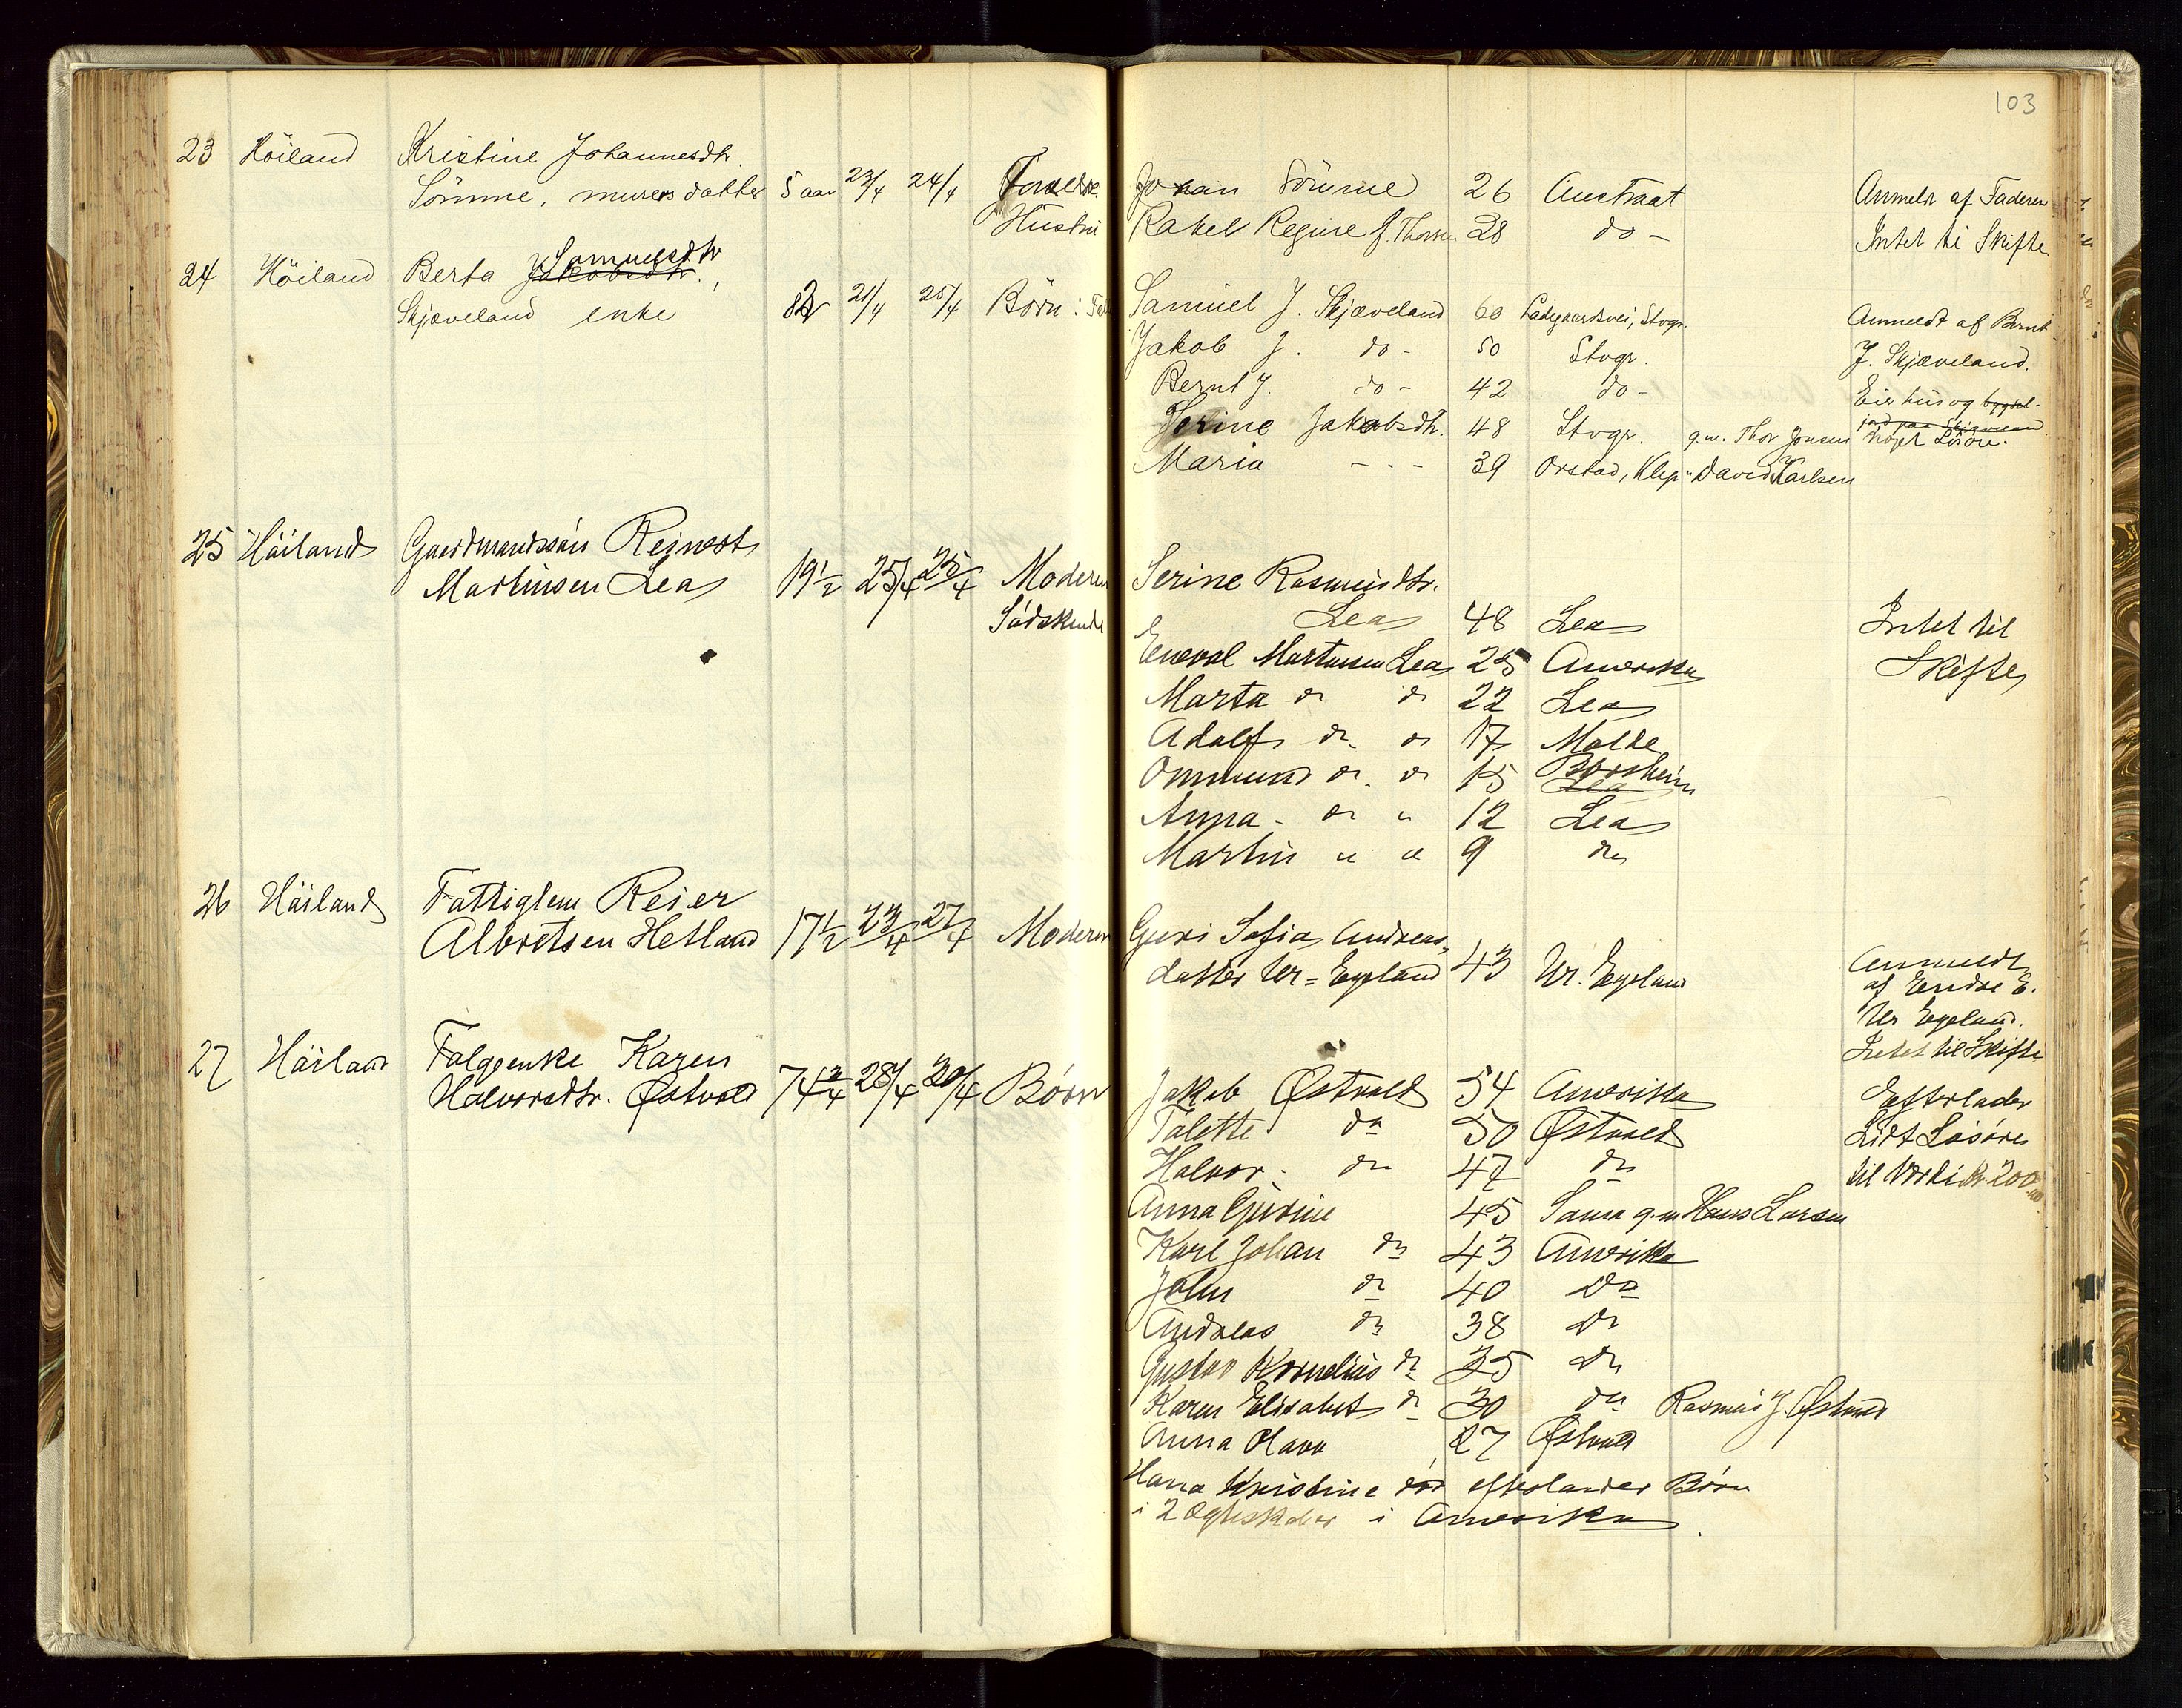 103
23 Höiland Kristine Johannesdtr.
Sömme, murers datter 5 aar 23/4 24/4 Forældre Johan Sömme 26 Austraat Anmeldt af Faderen
Hustru Rakel Regine f. Thorsen 28 do - Intet til Skifte.
24 Höiland Berta Jakobsdtr. Samuelsdtr,
Skjæveland enke 82 21/4 25/4 Börn: Samuel J. Skjæveland 60 Ladegaardsvei, Stvgr. Anmeldt af Bernt
Jakob J. do - 50 Stvgr. J. Skjæveland.
Bernt J. do - 42 do - Eier hus og bygsel-
jord paa Skjæveland
Serine Jakobsdtr. 48 Stvgr. g.m. Thor Jonsen noget Lösöre.
Maria - . - 39 Orstad, Klep " David Karlsen
25 Höiland Gaardmandssön Reinert
Martinsen Lea 19 1/2 25/4 25/4 Moderen Serine Rasmusdtr.
Södskende Lea 48 Lea Intet til
Eneval Martinsen Lea 25 Amerika Skifte
Marta do do 22 Lea
Adolf do do 17 Malde
Ommund do do 15 Lea Borsheim
Anna - do " 12 Lea
Martin " " 9 do
26 Höiland Fattiglem Reier
Albretsen Hetland 17 1/2 23/4 27/4 Moderen Guri Sofia Andreas-
datter Ur = Egeland 43 Ur. Egeland Anmeldt
af Endre E.
Ur Egeland.
Intet til Skifte
27 Höiland Folgeenke Karen
Halvorsdtr. Østvold 74 3/4 28/4 30/4 Börn Jakob Østvold 54 Amerika Efterlader
Talette do 50 Østvold Lidt Lösöre
Halvor - do 47 do til Værdi Kr. 200
Anna Gurine 45 Soma g.m. Hans Larsen
Karl Johan do 43 Amerika
John do 40 Do
Andreas do 38 Do
Gustav Kornelius do 35 Do
Karen Elisabet do 30 do Rasmus J. Østvold
Anna Olava 27 Østvold
Hana Kristine död efterlader Börn
i 2 Ægteskaber i Amerika.